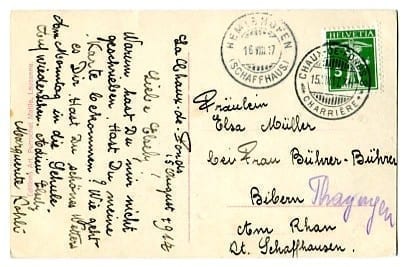 La Chaux-de-Fonds
15 August 1917
Liebe Elsely!
Warum hast Du mir nicht
geschrieben? Hast Du meine
Karte bekommen? Wie geht
es Dir. Hast Du schönes Wetter
Am Montag in die Schule.
Auf wiedersehn Adieu
Marguerite Kohler
HEMMENTHAL
16.VIII.17
(SCHAFFHAUS)
CHAUX-DE-FONDS
15.VIII
CHARRIÈRE
HELVETIA
5
Fräulein
Elsa Müller
bei Frau Bührer-Bührer
Bibern Thayngen
Am Rhan
Kt. Schaffhausen.